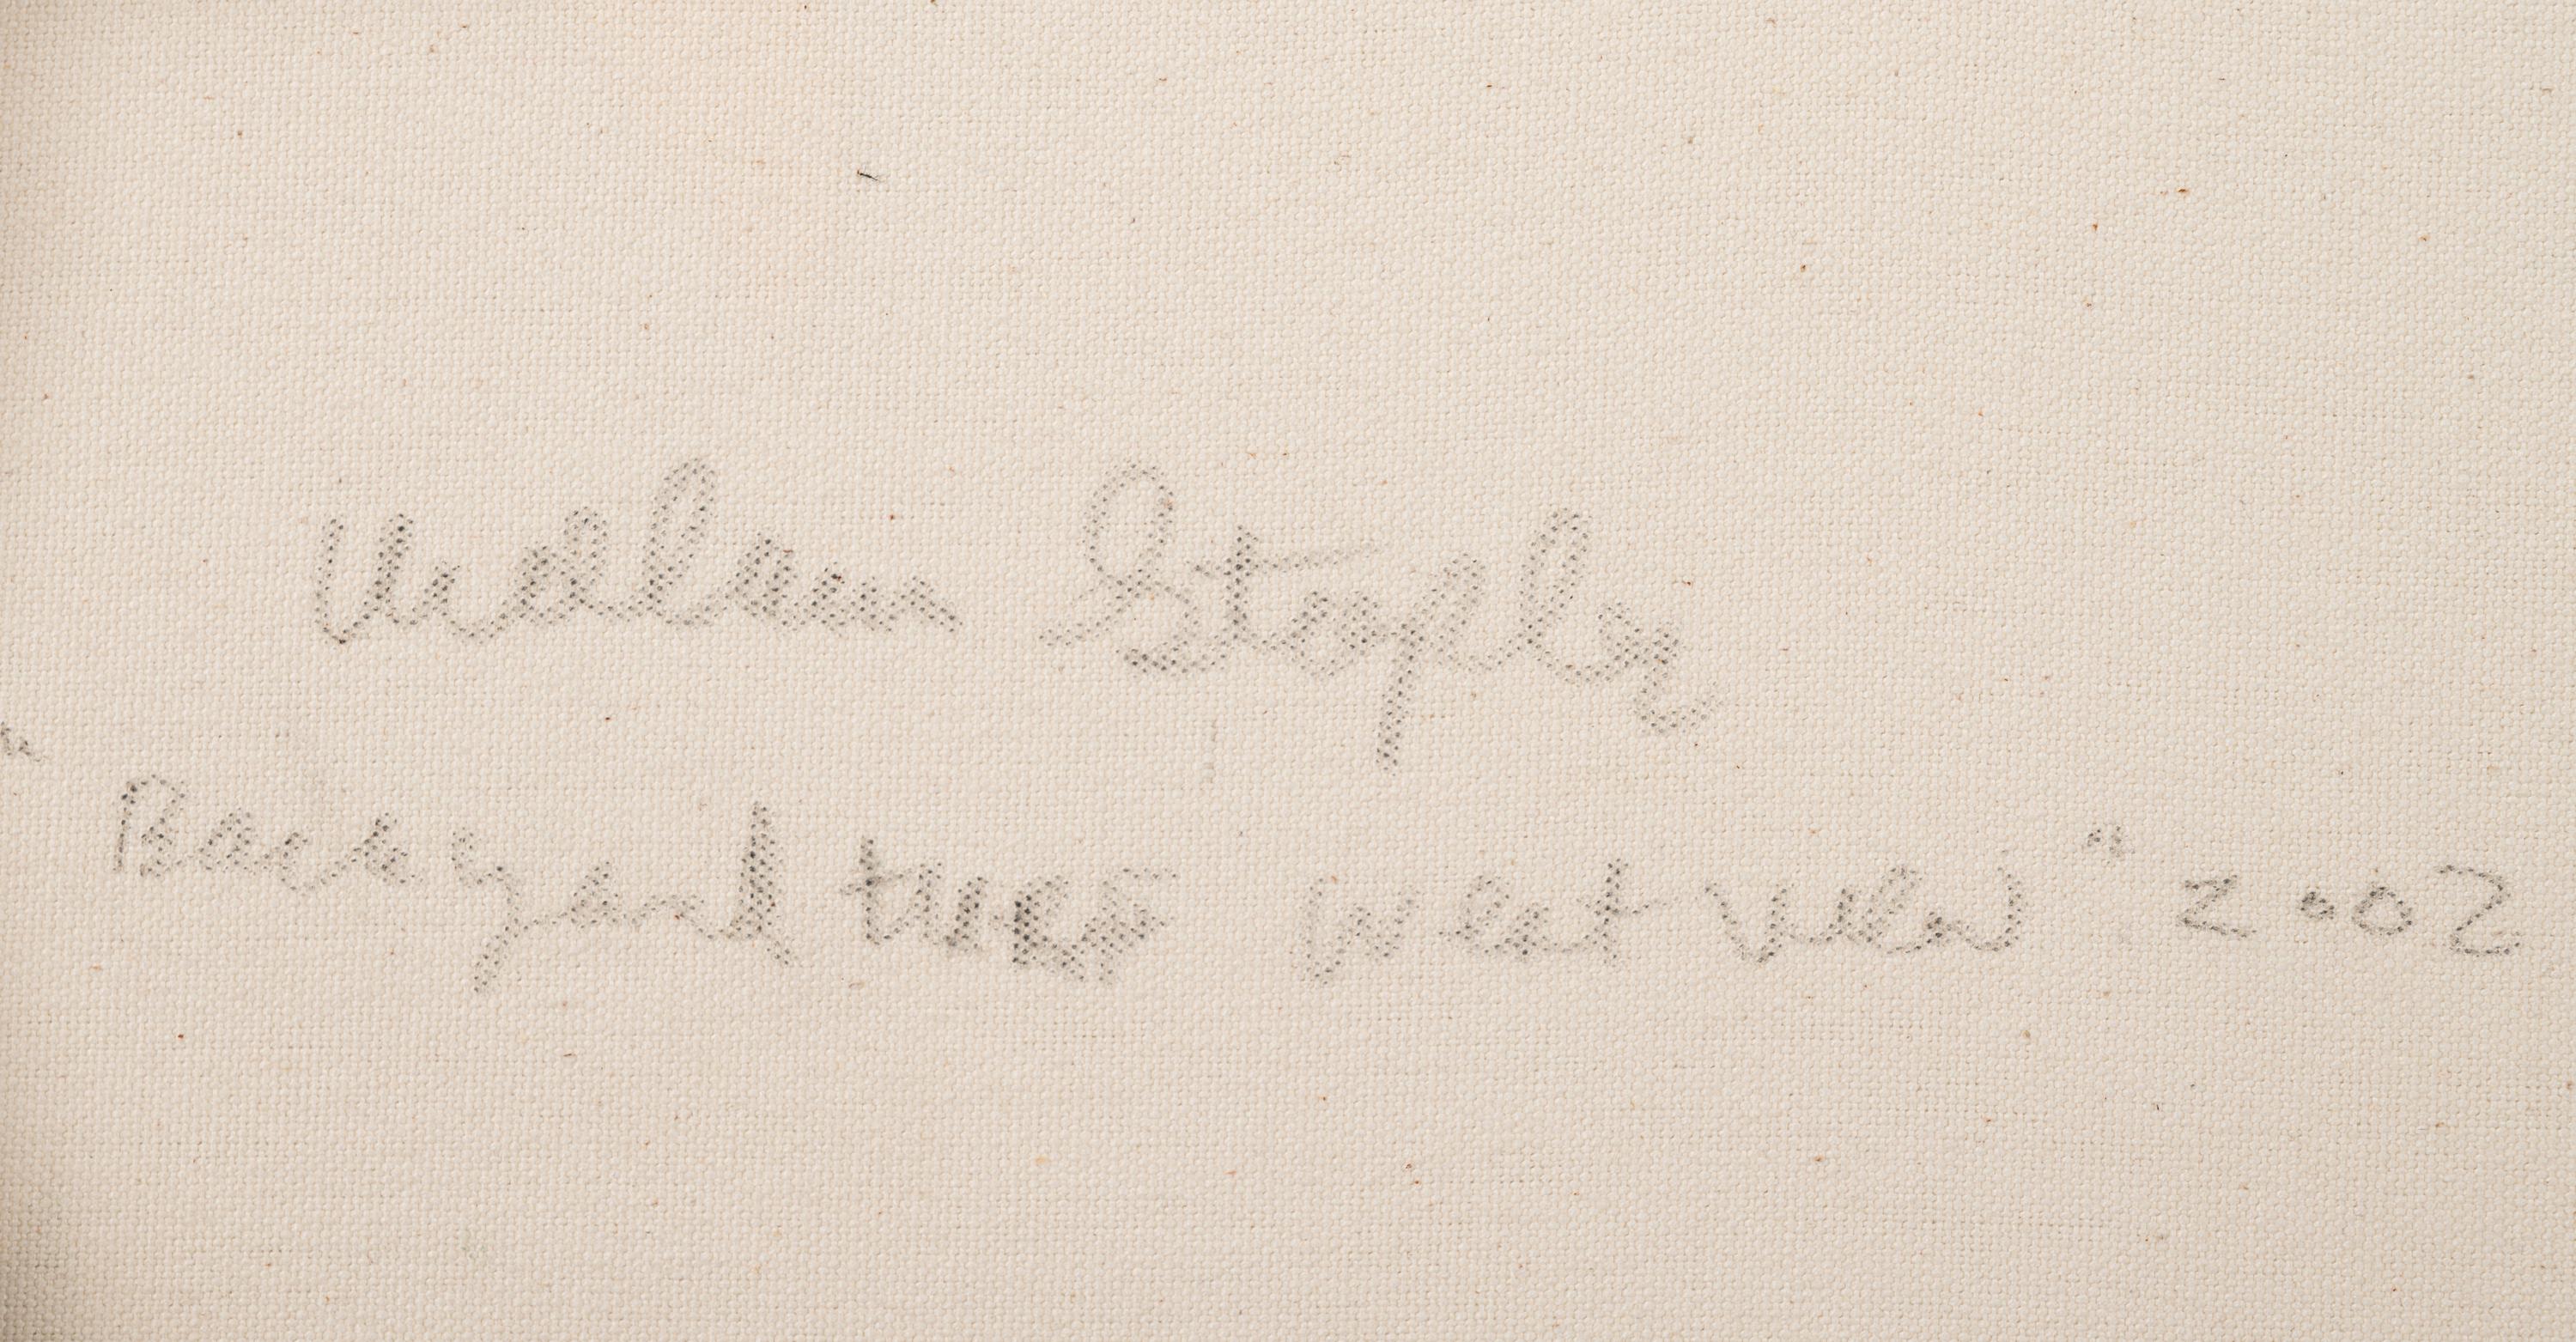 William Stapley
"Backyard trees west view" 2002